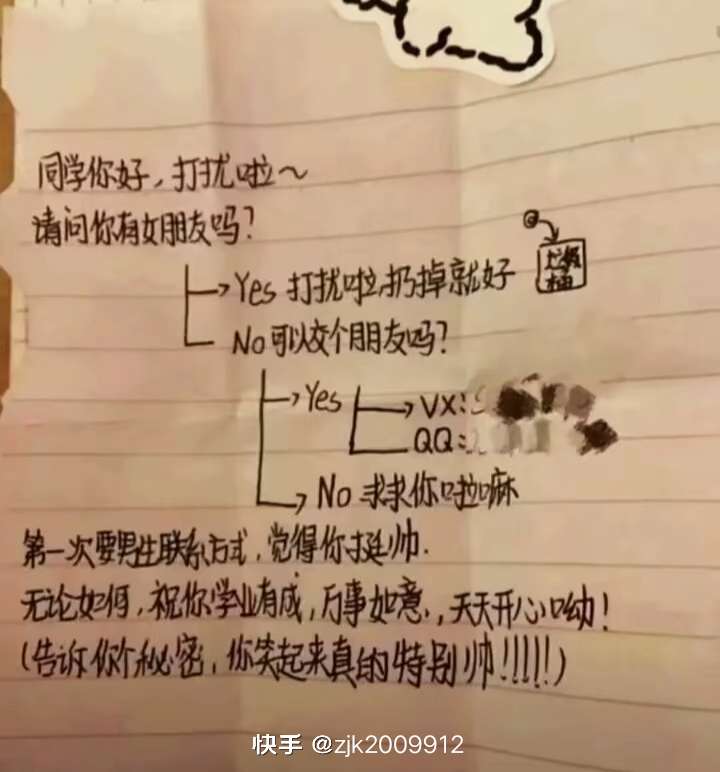 同学你好，打扰啦～
请问你有女朋友吗？
Yes 打扰啦，扔掉就好
垃圾桶
No 可以交个朋友吗？
Yes
VX:
QQ:
No 求求你啦嘛
第一次要男生联系方式，觉得你挺帅.
无论如何，祝你学业有成，万事如意，天天开心呦！
(告诉你个秘密，你笑起来真的特别帅!!!!!)
快手 @zjk2009912